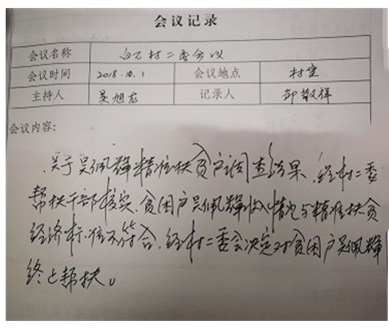 会议记录
会议名称 白石村二委会议
会议时间 2018.10.1 会议地点 村室
主持人 吴旭龙 记录人
会议内容:
关于吴佩辉精准扶贫户调查结果、经村二委
帮扶干部核实、贫困户吴佩辉收入情况与精准扶贫
经济标准不符合、经村二委会决定对贫困户吴佩辉
终止帮扶。